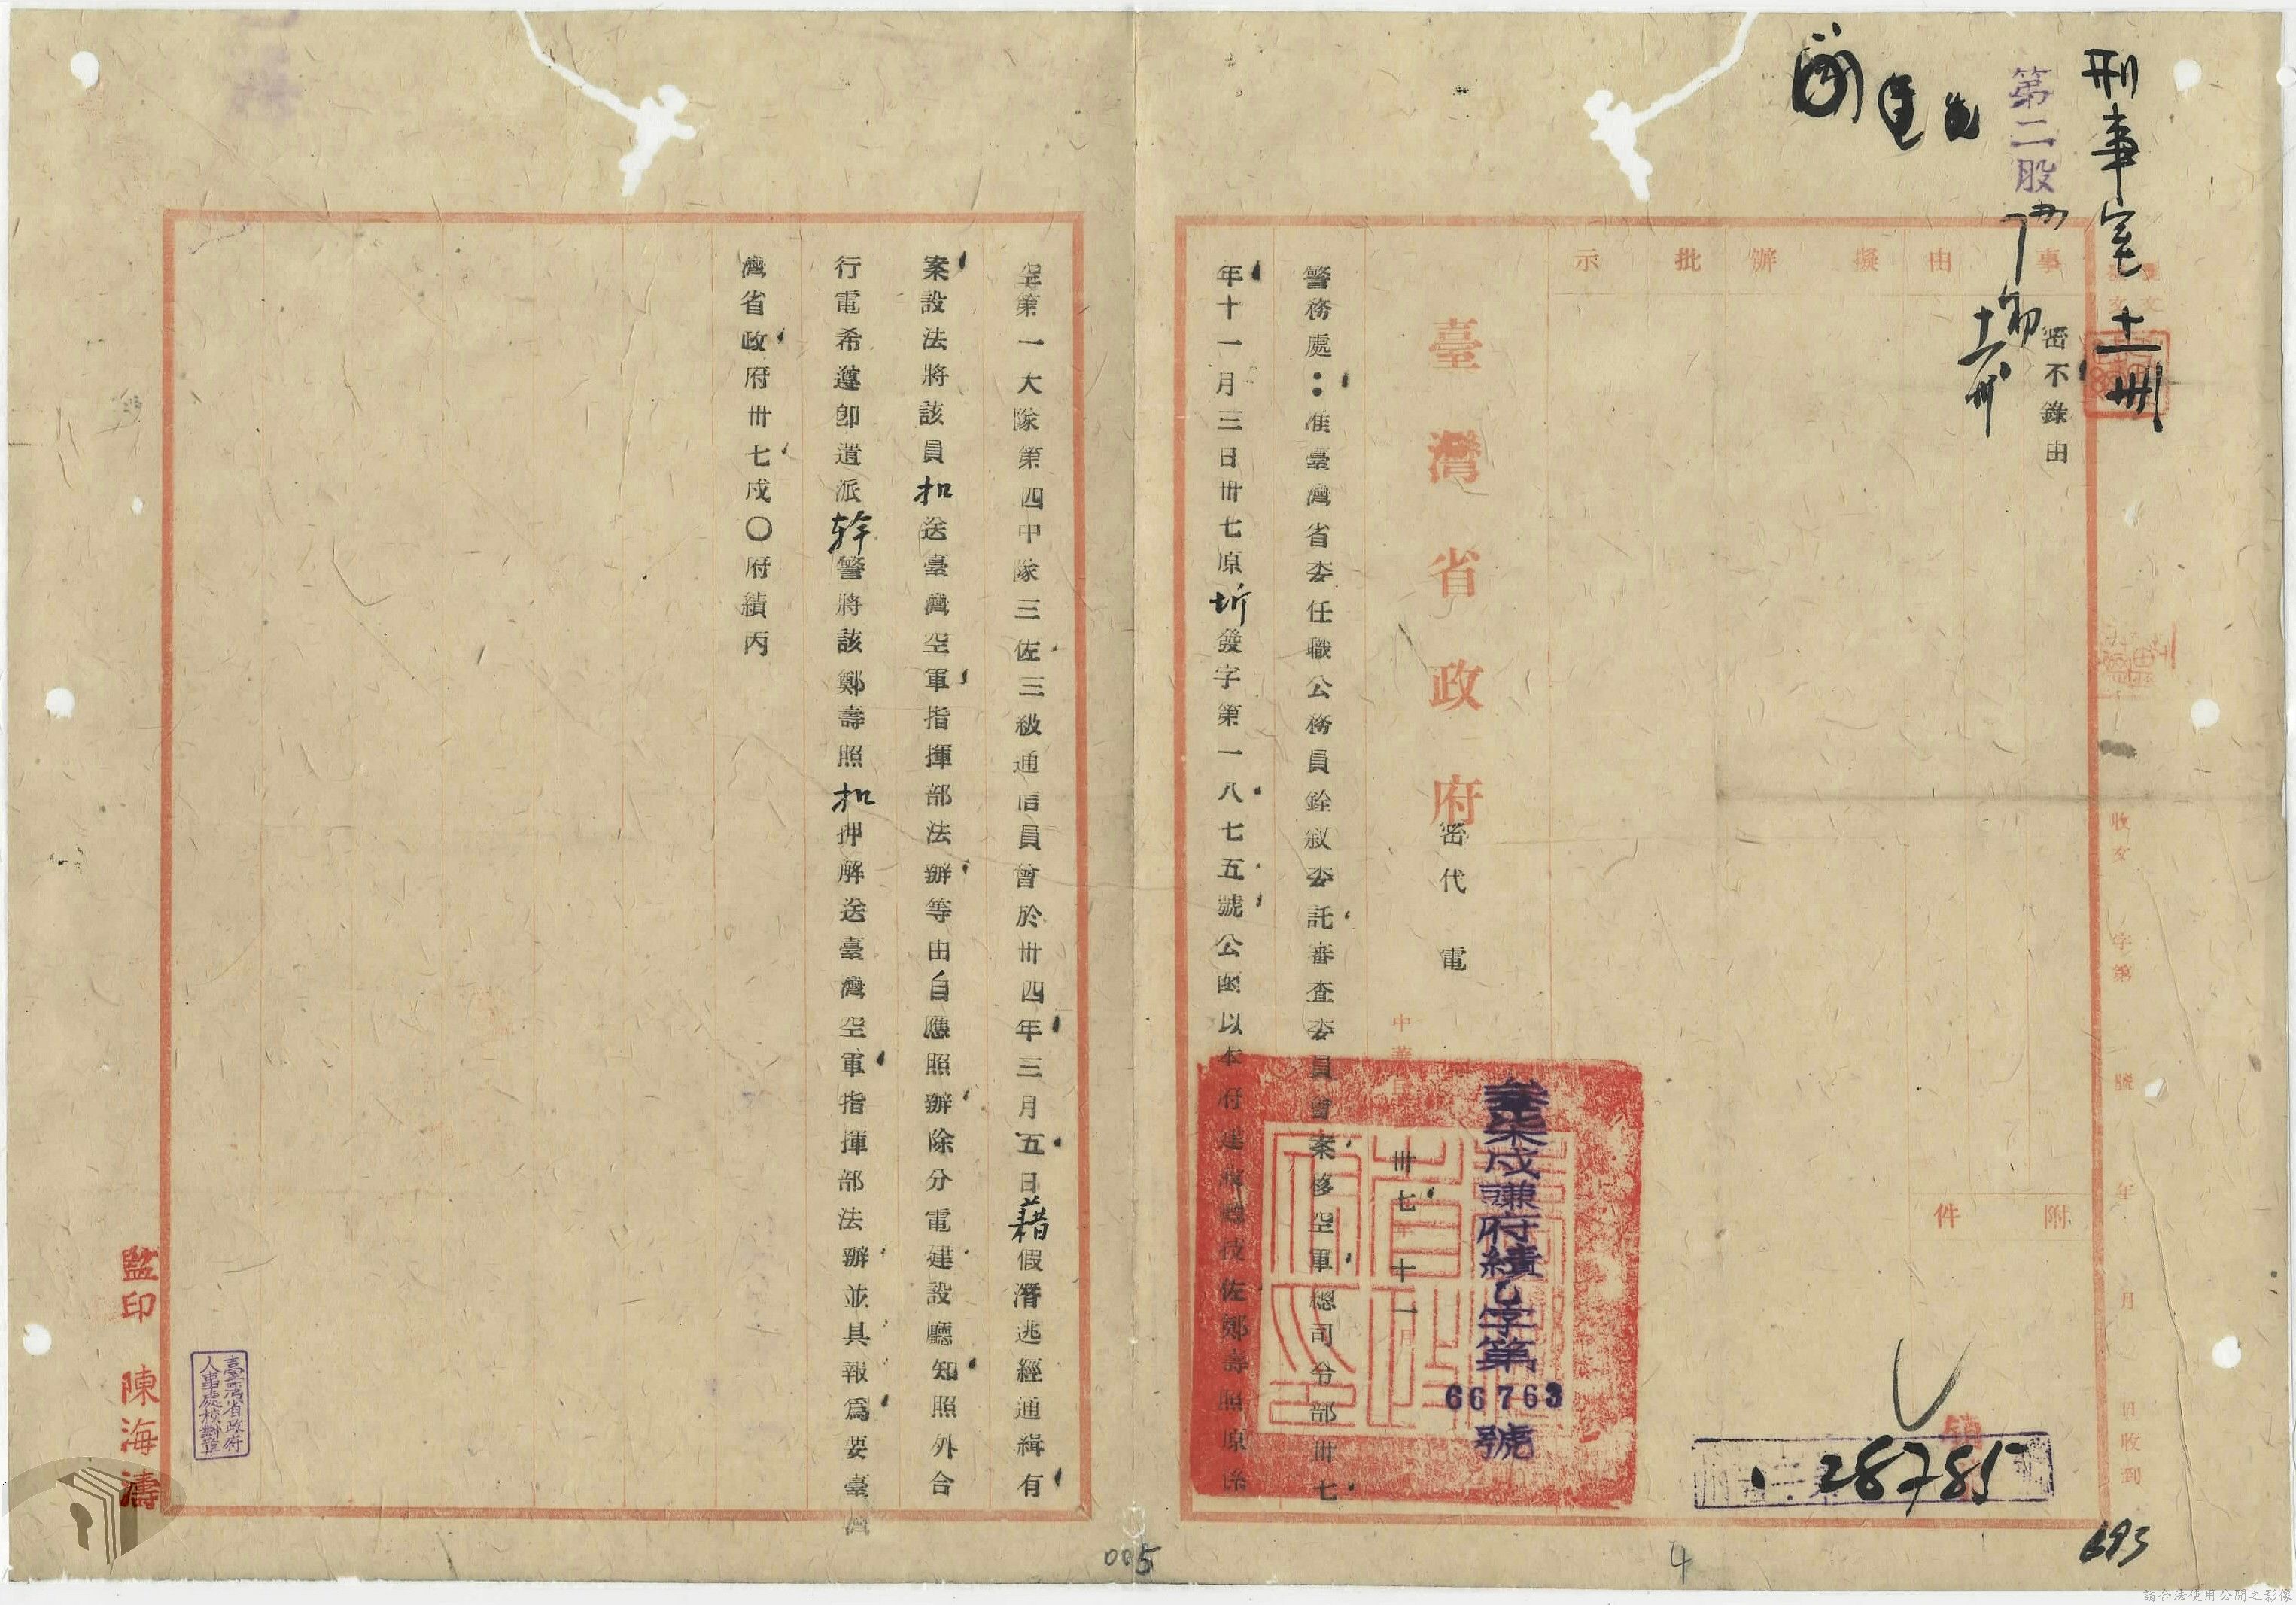 刑事室 十一卅
第二股
密不錄由
事由擬辦批示
附件
收文 字第 號 年 月 日收到
臺灣省政府密代電
中華民 卅七 十一月
叁柒戌謙府績乙字第66763號
警務處：准臺灣省委任職公務員銓敘委託審查委員會案移空軍總司令部卅七
年十一月三日卅七原圻發字第一八七五號公函以本府建設廳技佐鄭壽照原係
空第一大隊第四中隊三佐三級通信員曾於卅四年三月五日藉假潛逃經通緝有
案設法將該員扣送臺灣空軍指揮部法辦等由自應照辦除分電建設廳知照外合
行電希遵卽遣派幹警將該鄭壽照扣押解送臺灣空軍指揮部法辦並具報爲要臺灣
灣省政府卅七戌〇府績丙
監印 陳海濤
臺灣省政府
人事處校對章
28785
693
4
005
請合法使用公開之影像